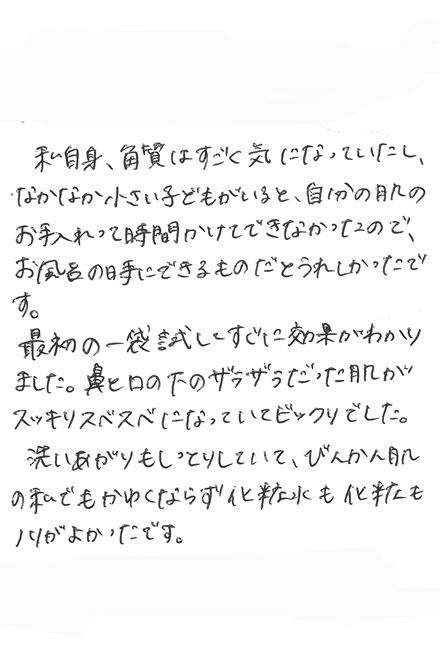 私自身、角質はすごく気になっていたし、
なかなか小さい子どもがいると、自分の肌の
お手入れって時間かけてできなかったので、
お風呂の時にできるものだとうれしかったで
す。
最初の一袋試してすぐに効果がわかり
ました。鼻と口の下のザラザラだった肌が
スッキリスベスベになっていてビックリでした。
洗いあがりもしっとりしていて、びんかん肌
の私でもかわくならず化粧水も化粧も
ノリがよかったです。